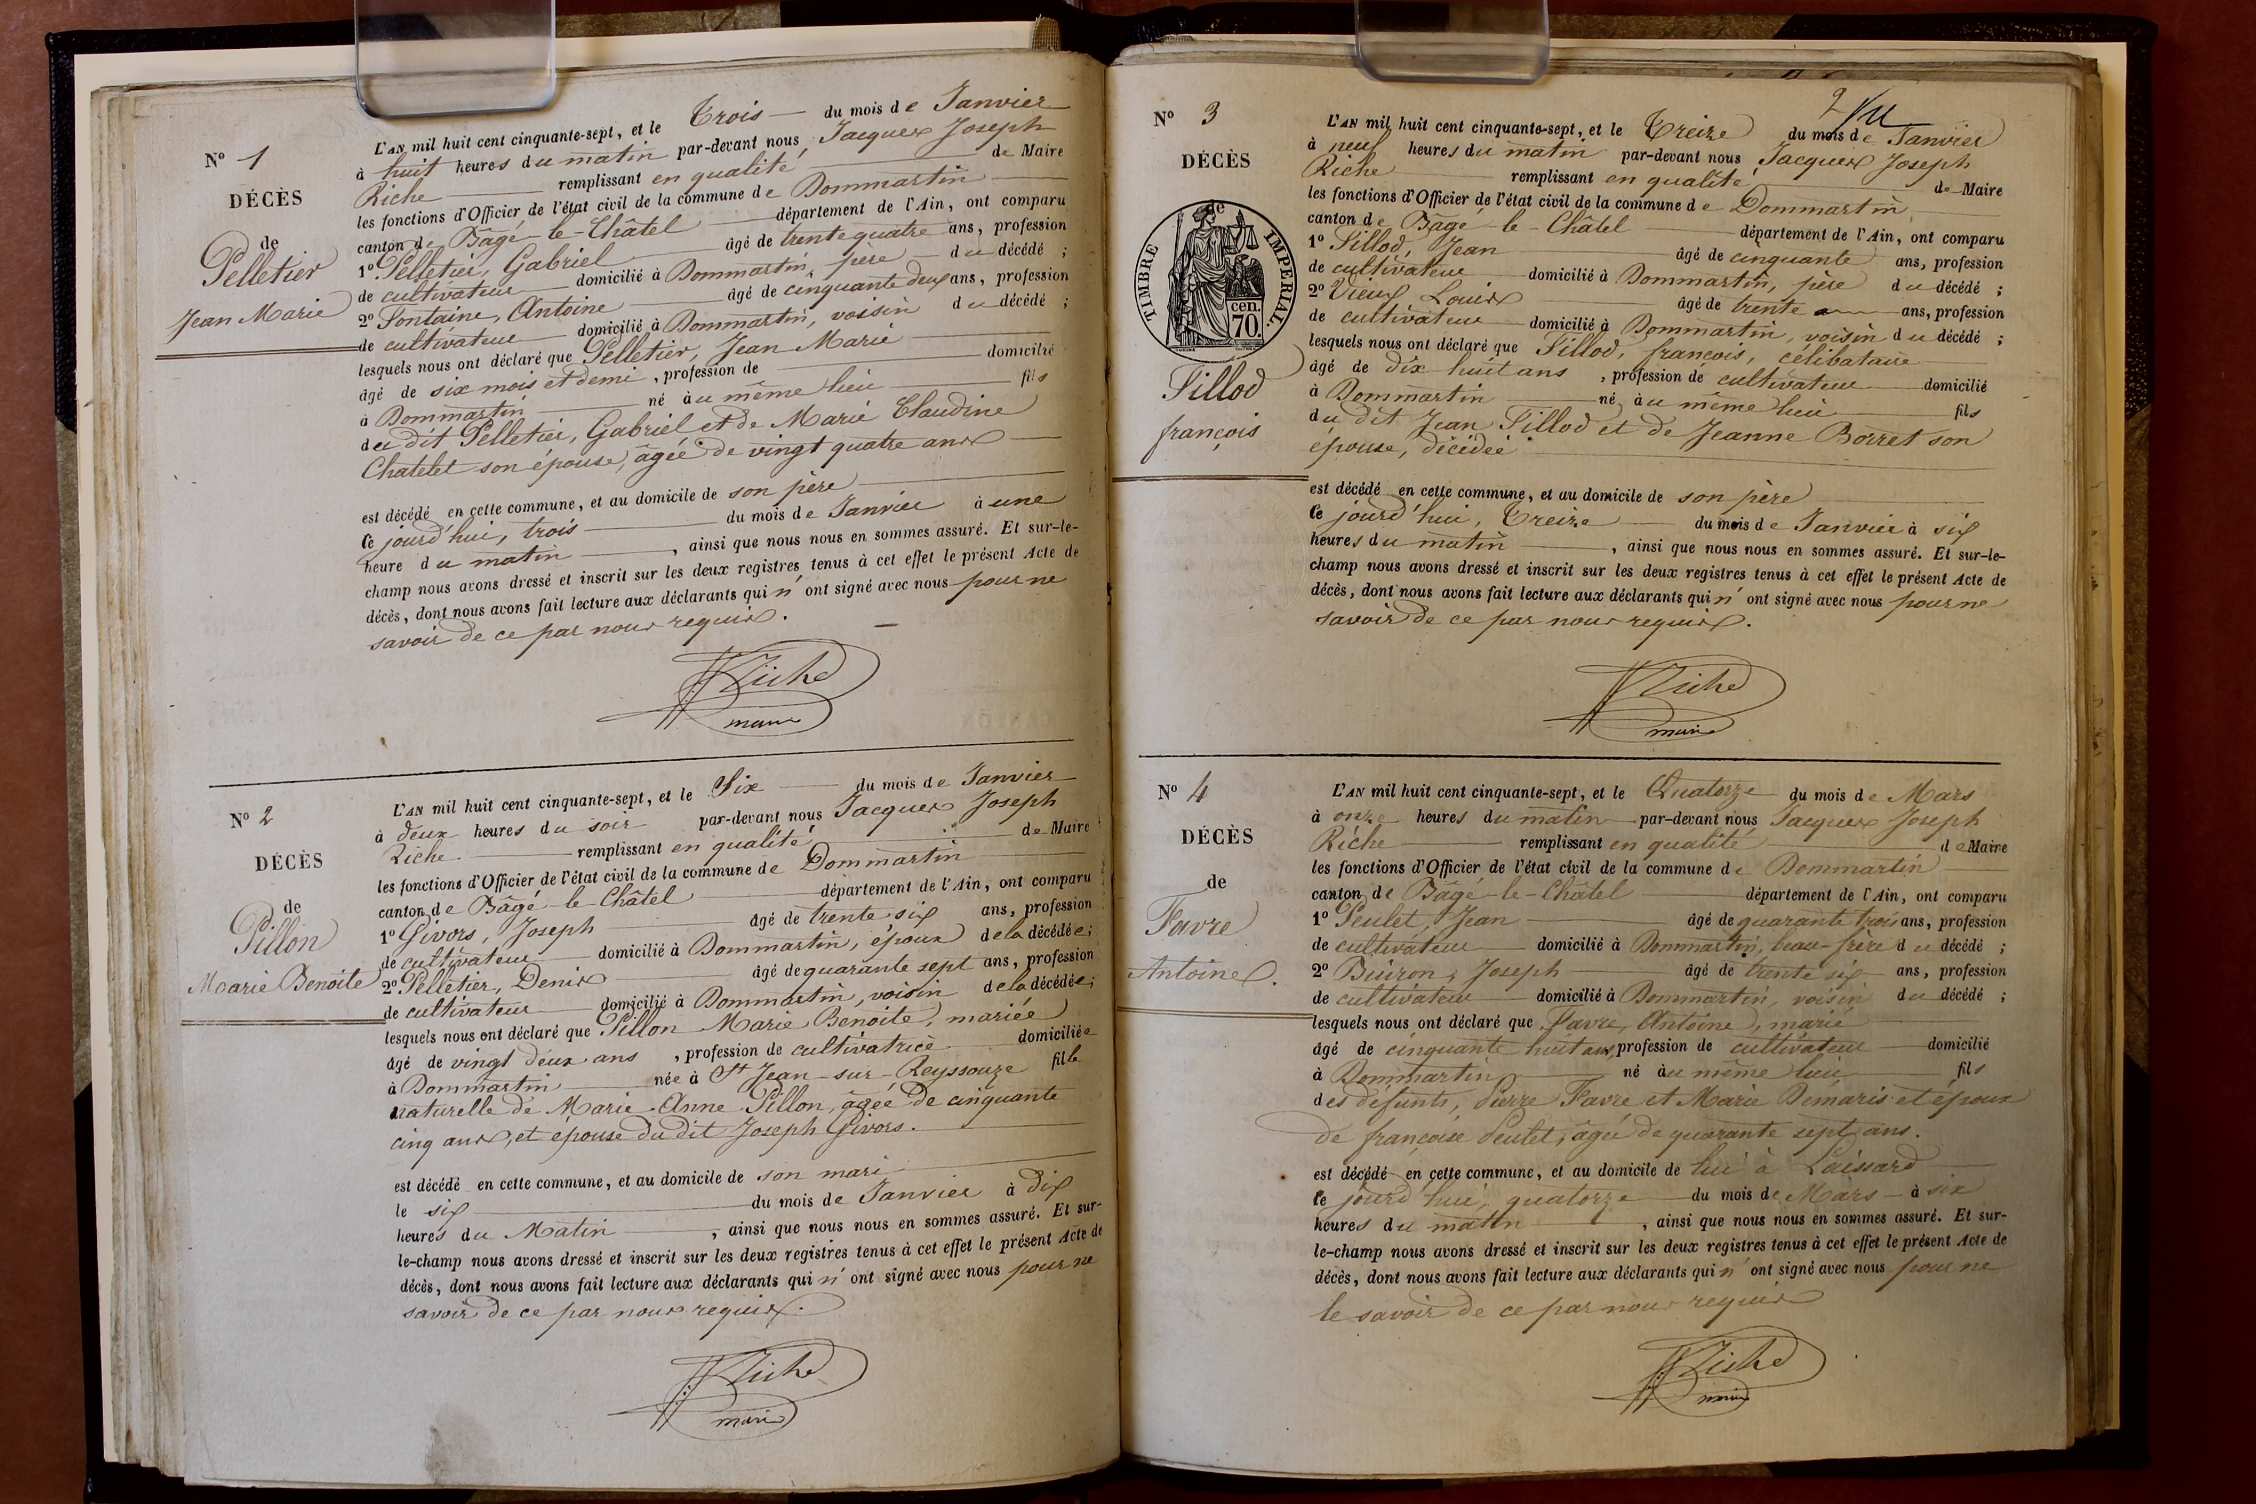 N° 1
DÉCÈS
de
Pelletier
Jean Marie
L'AN mil huit cent cinquante-sept, et le Trois du mois de Janvier
à huit heures du matin par-devant nous Jacques Joseph
Riche remplissant en qualité de Maire
les fonctions d'Officier de l'état civil de la commune de Dommartin
canton de Bâgé-le-Châtel département de l'Ain, ont comparu
1° Pelletier, Gabriel âgé de trente quatre ans, profession
de cultivateur domicilié à Dommartin, père du décédé ;
2° Fontaine, Antoine âgé de cinquante deux ans, profession
de cultivateur domicilié à Dommartin, voisin du décédé ;
lesquels nous ont déclaré que Pelletier, Jean Marie
âgé de six mois et demi, profession de domicilié
à Dommartin né au même lieu fils
du dit Pelletier, Gabriel et de Marie Claudine
Chatelet son épouse, âgée de vingt quatre ans
est décédé en cette commune, et au domicile de son père
Ce jourd'hui, trois du mois de Janvier à une
heure du matin, ainsi que nous nous en sommes assuré. Et sur-le-
champ nous avons dressé et inscrit sur les deux registres tenus à cet effet le présent Acte de
décès, dont nous avons fait lecture aux déclarants qui n'ont signé avec nous pour ne
savoir de ce par nous requis.
Riche
maire
N° 2
DÉCÈS
de
Pillon
Marie Benoite
L'AN mil huit cent cinquante-sept, et le Six du mois de Janvier
à deux heures du soir par-devant nous Jacques Joseph
Riche remplissant en qualité de Maire
les fonctions d'Officier de l'état civil de la commune de Dommartin
canton de Bâgé-le-Châtel département de l'Ain, ont comparu
1° Givors, Joseph âgé de trente six ans, profession
de cultivateur domicilié à Dommartin, époux de la décédée ;
2° Pelletier, Denis âgé de quarante sept ans, profession
de cultivateur domicilié à Dommartin, voisin de la décédée ;
lesquels nous ont déclaré que Pillon Marie Benoite, mariée
âgé de vingt deux ans, profession de cultivatrice domiciliée
à Dommartin née à St Jean-sur-Reyssouze fille
naturelle de Marie-Anne Pillon, âgée de cinquante
cinq ans, et épouse du dit Joseph Givors.
est décédé en cette commune, et au domicile de son mari
le six du mois de Janvier à dix
heures du Matin, ainsi que nous nous en sommes assuré. Et sur-
le-champ nous avons dressé et inscrit sur les deux registres tenus à cet effet le présent Acte de
décès, dont nous avons fait lecture aux déclarants qui n'ont signé avec nous pour ne
savoir de ce par nous requis.
Riche
maire
2
Vu
N° 3
DÉCÈS
de
TIMBRE IMPERIAL.
cen.
70
Pillod
françois
L'AN mil huit cent cinquante-sept, et le Treize du mois de Janvier
à neuf heures du matin par-devant nous Jacques Joseph
Riche remplissant en qualité de Maire
les fonctions d'Officier de l'état civil de la commune de Dommartin
canton de Bâgé-le-Châtel département de l'Ain, ont comparu
1° Pillod, Jean âgé de cinquante ans, profession
de cultivateur domicilié à Dommartin, père du décédé ;
2° Vieux Louis âgé de trente ans, profession
de cultivateur domicilié à Dommartin, voisin du décédé ;
lesquels nous ont déclaré que Pillod, françois, célibataire
âgé de dix huit ans, profession de cultivateur domicilié
à Dommartin né au même lieu fils
du dit Jean Pillod et de Jeanne Borret son
épouse, décédée
est décédé en cette commune, et au domicile de son père
Ce jourd'hui, Treize du mois de Janvier à six
heures du matin, ainsi que nous nous en sommes assuré. Et sur-le-
champ nous avons dressé et inscrit sur les deux registres tenus à cet effet le présent Acte de
décès, dont nous avons fait lecture aux déclarants qui n'ont signé avec nous pour ne
savoir de ce par nous requis.
Riche
maire
N° 4
DÉCÈS
de
Favre
Antoine.
L'AN mil huit cent cinquante-sept, et le Quatorze du mois de Mars
à onze heures du matin par-devant nous Jacques Joseph
Riche remplissant en qualité de Maire
les fonctions d'Officier de l'état civil de la commune de Dommartin
canton de Bâgé-le-Châtel département de l'Ain, ont comparu
1° Peulet, Jean âgé de quarante trois ans, profession
de cultivateur domicilié à Dommartin, beau-frère du décédé ;
2° Buiron, Joseph âgé de trente six ans, profession
de cultivateur domicilié à Dommartin, voisin du décédé ;
lesquels nous ont déclaré que Favre, Antoine, marié
âgé de cinquante huit ans, profession de cultivateur domicilié
à Dommartin né au même lieu fils
des défunts, Pierre Favre et Marie Demaris et époux
de françoise Peulet, âgée de quarante sept ans.
est décédé en cette commune, et au domicile de lui à Laissard
Ce jourd'hui, quatorze du mois de Mars à six
heures du matin, ainsi que nous nous en sommes assuré. Et sur-
le-champ nous avons dressé et inscrit sur les deux registres tenus à cet effet le présent Acte de
décès, dont nous avons fait lecture aux déclarants qui n'ont signé avec nous pour ne
le savoir de ce par nous requis
Riche
maire